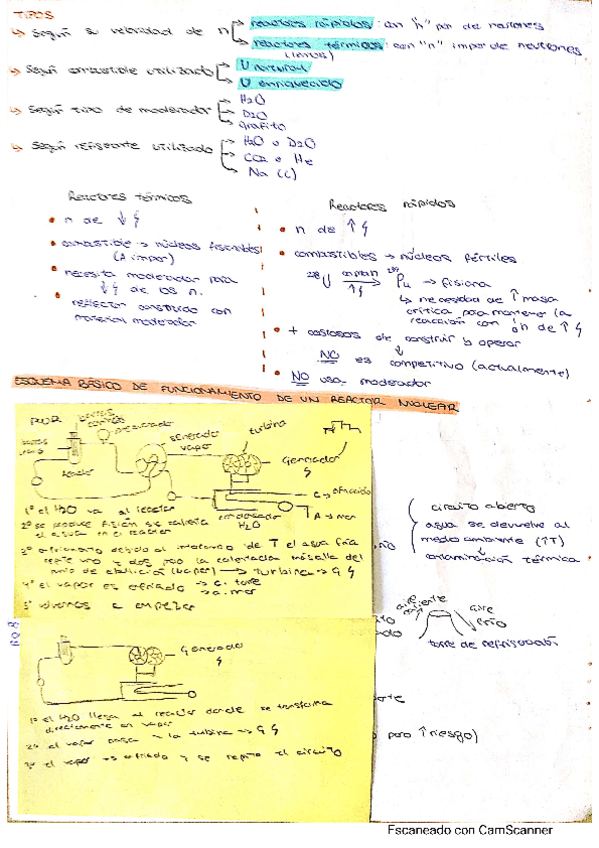 TIPOS
→ Según su velocidad de n
reactores rápidos: con "n" par de neutrones
reactores térmicos: con "n" impar de neutrones
(lentos)
→ Según combustible utilizado
U natural
U enriquecido
→ Según tipo de moderador
H2O
D2O
grafito
→ Según refrigerante utilizado
H2O o D2O
CO2 o He
Na (l)
Reactores térmicos
• n de ↓ ϟ
• combustible → núcleos fisionables
(A impar)
• necesita moderador para
↓ ϟ de los n.
• reflector construido con
material moderador
Reactores rápidos
• n de ↑ ϟ
• combustibles → núcleos fértiles
238 U captan 239 Pu → fisiona
↑ ϟ
↳ necesidad de ↑ masa
crítica para mantener la
reacción con n de ↑ ϟ
• + costosos de construir y operar
NO es competitivo (actualmente)
• NO usa moderador
ESQUEMA BÁSICO DE FUNCIONAMIENTO DE UN REACTOR NUCLEAR
PWR
barras
control
presurizador
generador
vapor
turbina
reactor
Generador
ϟ
condensador
H2O
A → mar
1º el H2O va al reactor
2º se produce fisión se calienta
el agua en el reactor
3º
debido al intercambio de T el agua fría
(vapor) → turbina → G ϟ
4º el vapor es enfriado → c. torre
→ a. mar
5º volvemos a empezar
circuito abierto
agua se devuelve al
medio ambiente (↑T)
contaminación térmica
aire
caliente
aire
frío
torre de refrigeración
Generador
ϟ
1º el H2O llega al reactor donde se transforma
directamente en vapor
2º el vapor pasa a la turbina → G ϟ
3º el vapor es enfriado y se repite el circuito
para ↑ riesgo)
Escaneado con CamScanner